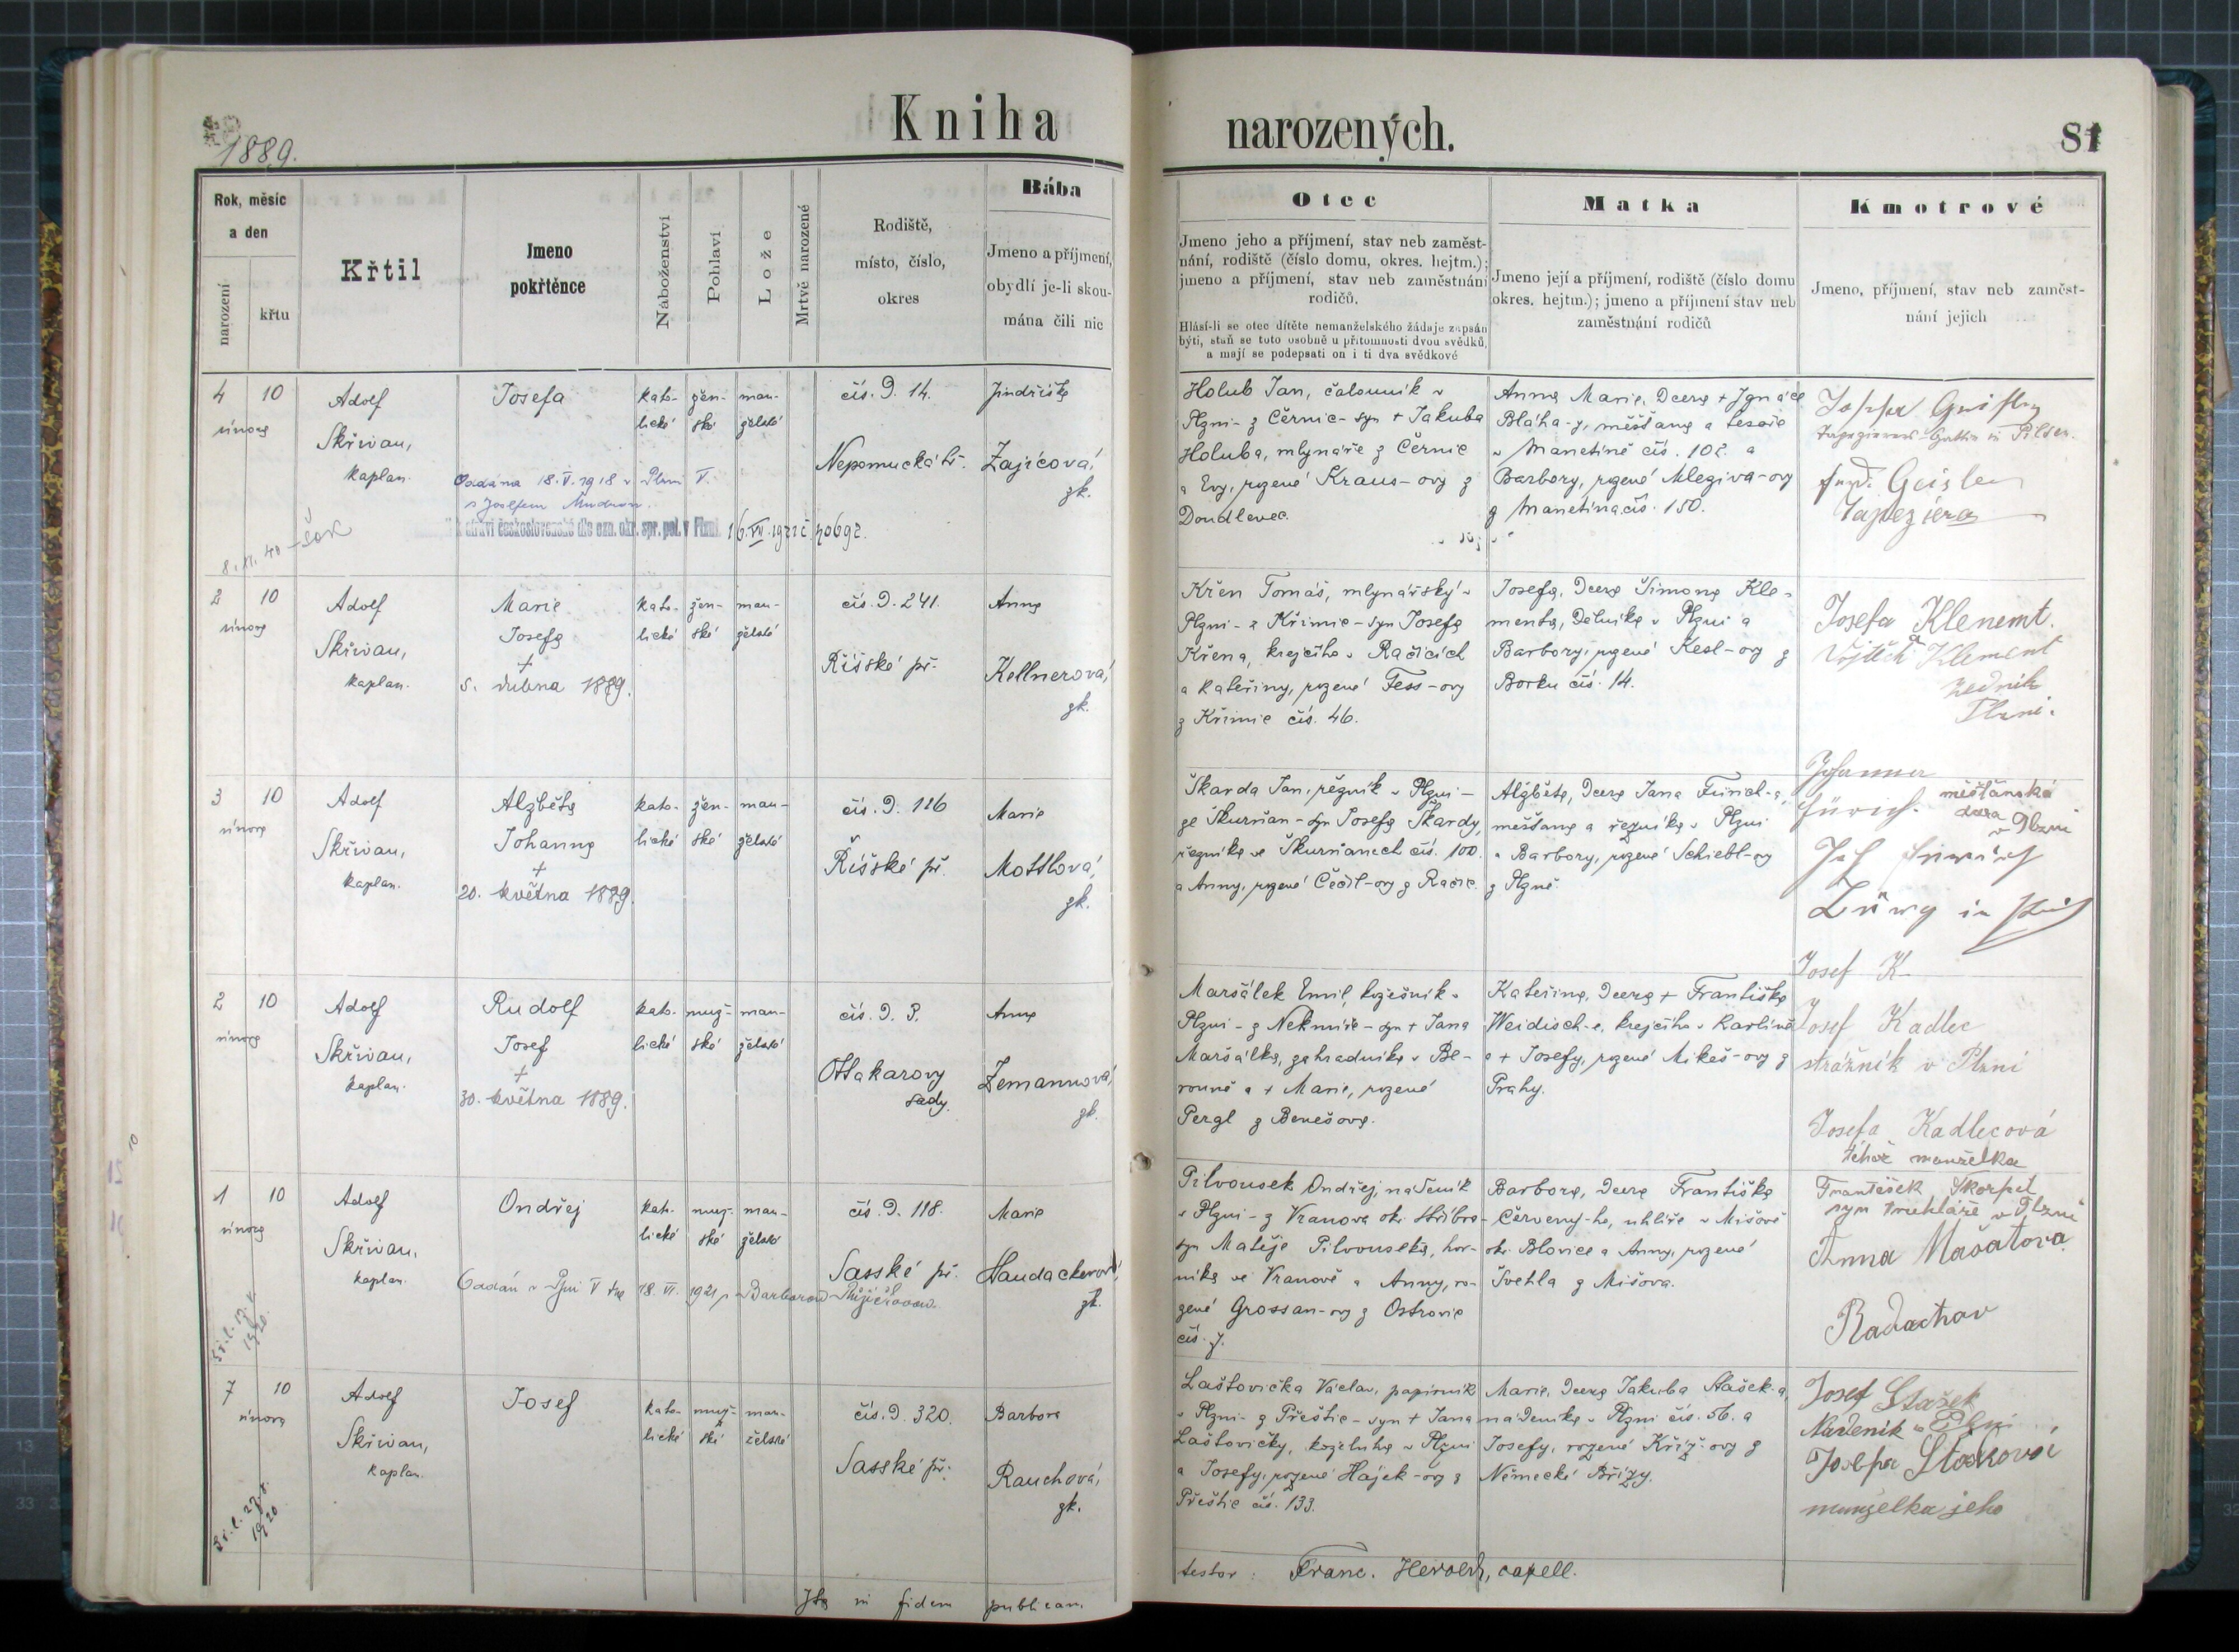 Kniha narozených.
1889.
81
Rok, měsíc
a den
narození
křtu
Křtil
Jmeno
pokřtěnce
Náboženství
Pohlaví
Lože
Mrtvě narozené
Rodiště,
místo, číslo,
okres
Bába
Jmeno a příjmení,
obydlí je-li skou-
mána čili nic
Otec
Jmeno jeho a příjmení, stav neb zaměst-
nání, rodiště (číslo domu, okres. hejtm.);
jmeno a příjmení, stav neb zaměstnání
rodičů.
Hlásí-li se otec dítěte nemanželského žádaje zapsán
býti, staň se toto osobně u přítomnosti dvou svědků,
a mají se podepsati on i ti dva svědkové
Matka
Jmeno její a příjmení, rodiště (číslo domu
okres. hejtm.); jmeno a příjmení stav neb
zaměstnání rodičů
Kmotrové
Jmeno, příjmení, stav neb zaměst-
nání jejich
4 10
února
Adolf
Skřivan,
kaplan.
Josefa
Oddána 18. V. 1918 v Plzni V.
s Josefem
církvi československé dle ozn. okr. spr. pol. v Plzni 16. VII. 1921 č. 40692.
8. XI. 40
kato-
lické
žen-
ské
man-
želské
čís. D. 14.
Nepomucká tř.
Jindřiška
Zajícová,
zk.
Holub Jan, čalouník v
Plzni - z Černic - syn + Jakuba
Holuba, mlynáře z Černic
a Evy, rozené Kraus-ovy z
Doudlevec.
Anna Marie, dcera + Ignáce
Bláha-y, měšťana a tesaře
v Manetíně čís. 102 a
Barbory, rozené Mleziva-ovy
z Manetína čís. 150.
Geisler
Tapeziera
2 10
února
Adolf
Skřivan,
kaplan.
Marie
Josefa
+
5. dubna 1889.
kato-
lické
žen-
ské
man-
želské
čís. D. 241.
Říšské př.
Anna
Kellnerová,
zk.
Křen Tomáš, mlynářský v
Plzni - z Křimic - syn Josefa
Křena, krejčího v Račicích
a Kateřiny, rozené Fess-ovy
z Křimic čís. 46.
Josefa, dcera Šimona Kle-
menta, dělníka v Plzni a
Barbory, rozené Kesl-ovy z
Borku čís. 14.
Josefa Klenemt.
Vojtěch Klement
zedník
Plzni.
3 10
února
Adolf
Skřivan,
kaplan.
Alžběta
Johanna
+
20. května 1889.
kato-
lické
žen-
ské
man-
želské
čís. D. 126
Říšské př.
Marie
Mottlová,
zk.
Škarda Jan, řezník v Plzni -
ze Skurňan - syn Josefa Škardy,
řezníka ve Skurňanech čís. 100.
a Anny, rozené Čečil-ovy z Račic.
Alžběta, dcera Jana Fürich-a,
měšťana a řezníka v Plzni
a Barbory, rozené Schiebl-ovy
z Plzně.
Johanna
Fürich. měšťanská
dcera
v Plzni
2 10
února
Adolf
Skřivan,
kaplan.
Rudolf
Josef
+
30. května 1889.
kato-
lické
muž-
ské
man-
želské
čís. D. 3.
Ottakarovy
sady.
Anna
Zemannová,
zk.
Maršálek Emil, kožešník v
Plzni - z Nekmíře - syn + Jana
Maršálka, zahradníka v Be-
rouně a + Marie, rozené
Pergl z Benešova.
Kateřina, dcera + Františka
Weidisch-e, krejčího v Karlíně
a + Josefy, rozené Mikeš-ovy z
Prahy.
Josef K
Josef Kadlec
strážník v Plzni
Josefa Kadlecová
téhož manželka
1 10
února
Adolf
Skřivan,
kaplan.
Ondřej
Oddán v Plzni V dne 18. VI. 1921 s Barborou
kato-
lické
muž-
ské
man-
želské
čís. D. 118.
Sasské př.
Marie
Haudackerová,
zk.
Pilvousek Ondřej, nádeník
v Plzni - z Vranova okr. Stříbro -
syn Matěje Pilvouseka, hor-
níka ve Vranově a Anny, ro-
zené Grossan-ovy z Ostrovic
čís. 7.
Barbora, dcera Františka
Červený-ho, uhlíře v Mišově
okr. Blovice a Anny, rozené
Švehla z Mišova.
František Škorpil
syn truhláře v Plzni
Anna Mašatova
Radochov
7 10
února
Adolf
Skřivan,
kaplan.
Josef
kato-
lické
muž-
ské
man-
želské
čís. D. 320.
Sasské př.
Barbora
Rauchová,
zk.
Laštovička Václav, papírník
v Plzni - z Přeštic - syn + Jana
Laštovičky, koželuha v Plzni
a Josefy, rozené Hájek-ovy z
Přeštic čís. 133.
Marie, dcera Jakuba Stašek-a,
nádeníka v Plzni čís. 56. a
Josefy, rozené Kříž-ovy z
Německé Břízy.
Josef Stašek
Nádeník v Plzni
Josefa Staskova
manželka jeho
Ita in fidem publicam
testor: Franc. Herolch, capell.